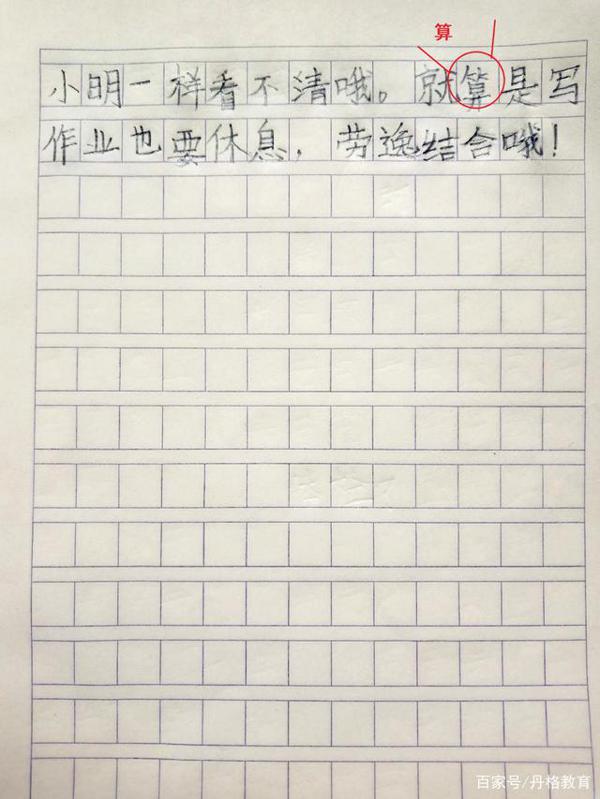 算
小明一样看不清哦。就算是写
作业也要休息，劳逸结合哦！
百家号/丹格教育